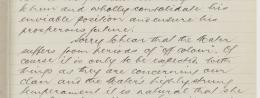 and wholly consolidate his
enviable position and ensure his
prosperous future.
Sorry to hear that the Mater
suffers from periods of off colour. Of
course it is only to be expected with
things as they are concerning our
clan and the Mater's highly strung
temperament it is natural that she